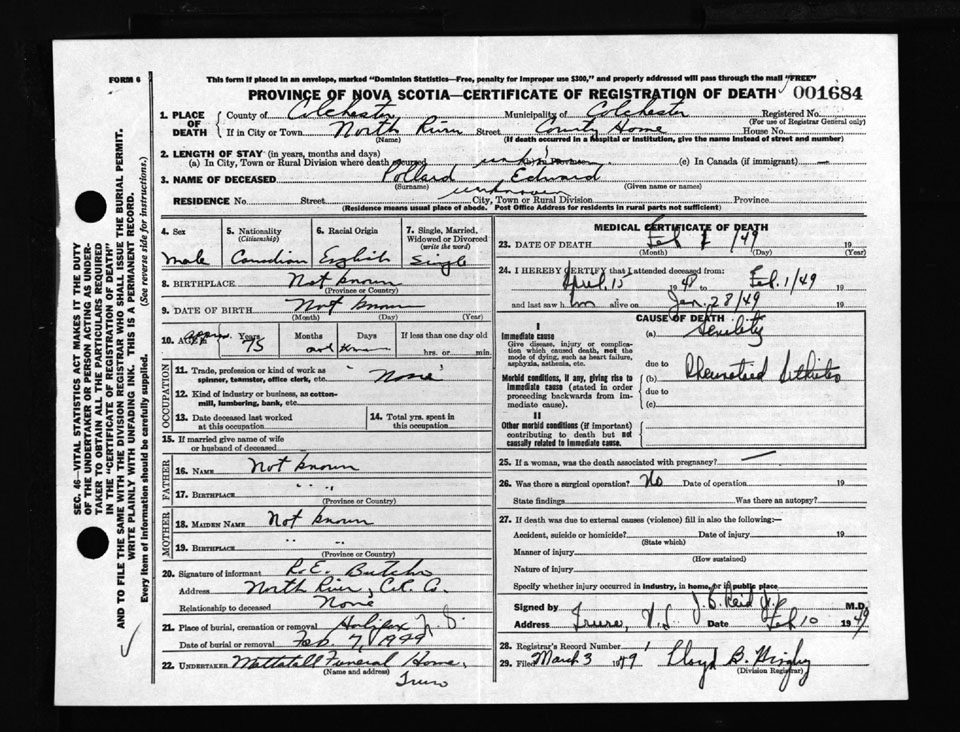 FORM 6
This form if placed in an envelope, marked "Dominion Statistics—Free, penalty for improper use $300," and properly addressed will pass through the mail "FREE"
PROVINCE OF NOVA SCOTIA—CERTIFICATE OF REGISTRATION OF DEATH 001684
1. PLACE OF DEATH
County of Colchester Municipality of Colchester Registered No.
(For use of Registrar General only)
If in City or Town North River Street County Home House No.
(Name) (If death occurred in a hospital or institution, give the name instead of street and number)
2. LENGTH OF STAY (in years, months and days)
(a) In City, Town or Rural Division where death occurred (c) In Canada (if immigrant) —
3. NAME OF DECEASED Pollard Edward
(Surname) (Given name or names)
unknown
RESIDENCE No. Street City, Town or Rural Division Province
(Residence means usual place of abode. Post Office Address for residents in rural parts not sufficient)
4. Sex 5. Nationality (Citizenship) 6. Racial Origin 7. Single, Married, Widowed or Divorced (write the word)
Male Canadian English Single
8. BIRTHPLACE Not known
(Province or Country)
9. DATE OF BIRTH Not known
(Month) (Day) (Year)
10. AGE Years Months Days If less than one day old
75 not known hrs. or min.
OCCUPATION
11. Trade, profession or kind of work as spinner, teamster, office clerk, etc. "None"
12. Kind of industry or business, as cotton-mill, lumbering, bank, etc.
13. Date deceased last worked at this occupation
14. Total yrs. spent in this occupation
15. If married give name of wife or husband of deceased
FATHER
16. NAME Not known
17. BIRTHPLACE " " "
(Province or Country)
MOTHER
18. MAIDEN NAME Not known
19. BIRTHPLACE " "
(Province or Country)
20. Signature of informant
Address North River, Col. Co.
Relationship to deceased None
21. Place of burial, cremation or removal Halifax N.S.
Date of burial or removal Feb. 7, 1949
22. UNDERTAKER Mattatall Funeral Home,
(Name and address) Truro
MEDICAL CERTIFICATE OF DEATH
23. DATE OF DEATH Feb 1 /49 19
(Month) (Day) (Year)
24. I HEREBY CERTIFY that I attended deceased from:
April 15 1948 to Feb. 1/49
and last saw him alive on Jan. 28/49 19
CAUSE OF DEATH
I
Immediate cause
Give disease, injury or complication which caused death, not the mode of dying, such as heart failure, asphyxia, asthenia, etc.
(a) Senility
due to
Morbid conditions, if any, giving rise to immediate cause (stated in order proceeding backwards from immediate cause).
(b) Rheumatoid Arthritis
due to
(c)
II
Other morbid conditions (if important) contributing to death but not causally related to immediate cause.
25. If a woman, was the death associated with pregnancy? —
26. Was there a surgical operation? No Date of operation 19
State findings Was there an autopsy?
27. If death was due to external causes (violence) fill in also the following:—
Accident, suicide or homicide? Date of injury 19
(State which)
Manner of injury
(How sustained)
Nature of injury
Specify whether injury occurred in industry, in home, or in public place
Signed by J.B. Reid Jr. M.D.
Address Truro, N.S. Date Feb 10 1949
28. Registrar's Record Number
29. Filed March 3 1949 Lloyd B.
(Division Registrar)
SEC. 46—VITAL STATISTICS ACT MAKES IT THE DUTY
OF THE UNDERTAKER OR PERSON ACTING AS UNDER-
TAKER TO OBTAIN ALL THE PARTICULARS REQUIRED
IN THE "CERTIFICATE OF REGISTRATION OF DEATH"
AND TO FILE THE SAME WITH THE DIVISION REGISTRAR WHO SHALL ISSUE THE BURIAL PERMIT.
WRITE PLAINLY WITH UNFADING INK. THIS IS A PERMANENT RECORD.
Every Item of Information should be carefully supplied. (See reverse side for instructions.)